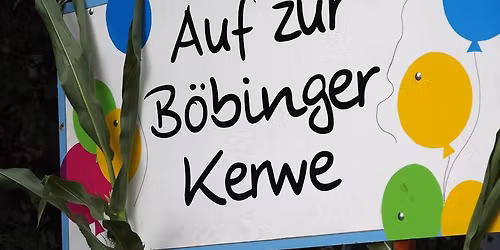 Auf zur
Böbinger
Kerwe